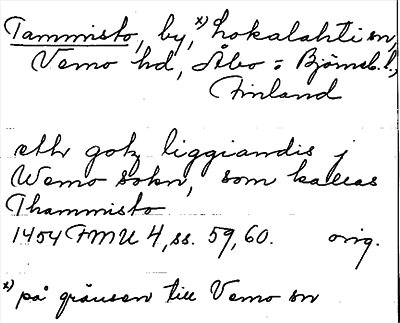 Tammisto, by, x) Lokalahti sn,
Vemo hd, Åbo = Björneb. l.,
Finland
eth gotz liggiandis j
Wemo sokn, som kallas
Thammisto
1454 FMU 4, ss. 59, 60. orig.
x) på gränsen till Vemo sn